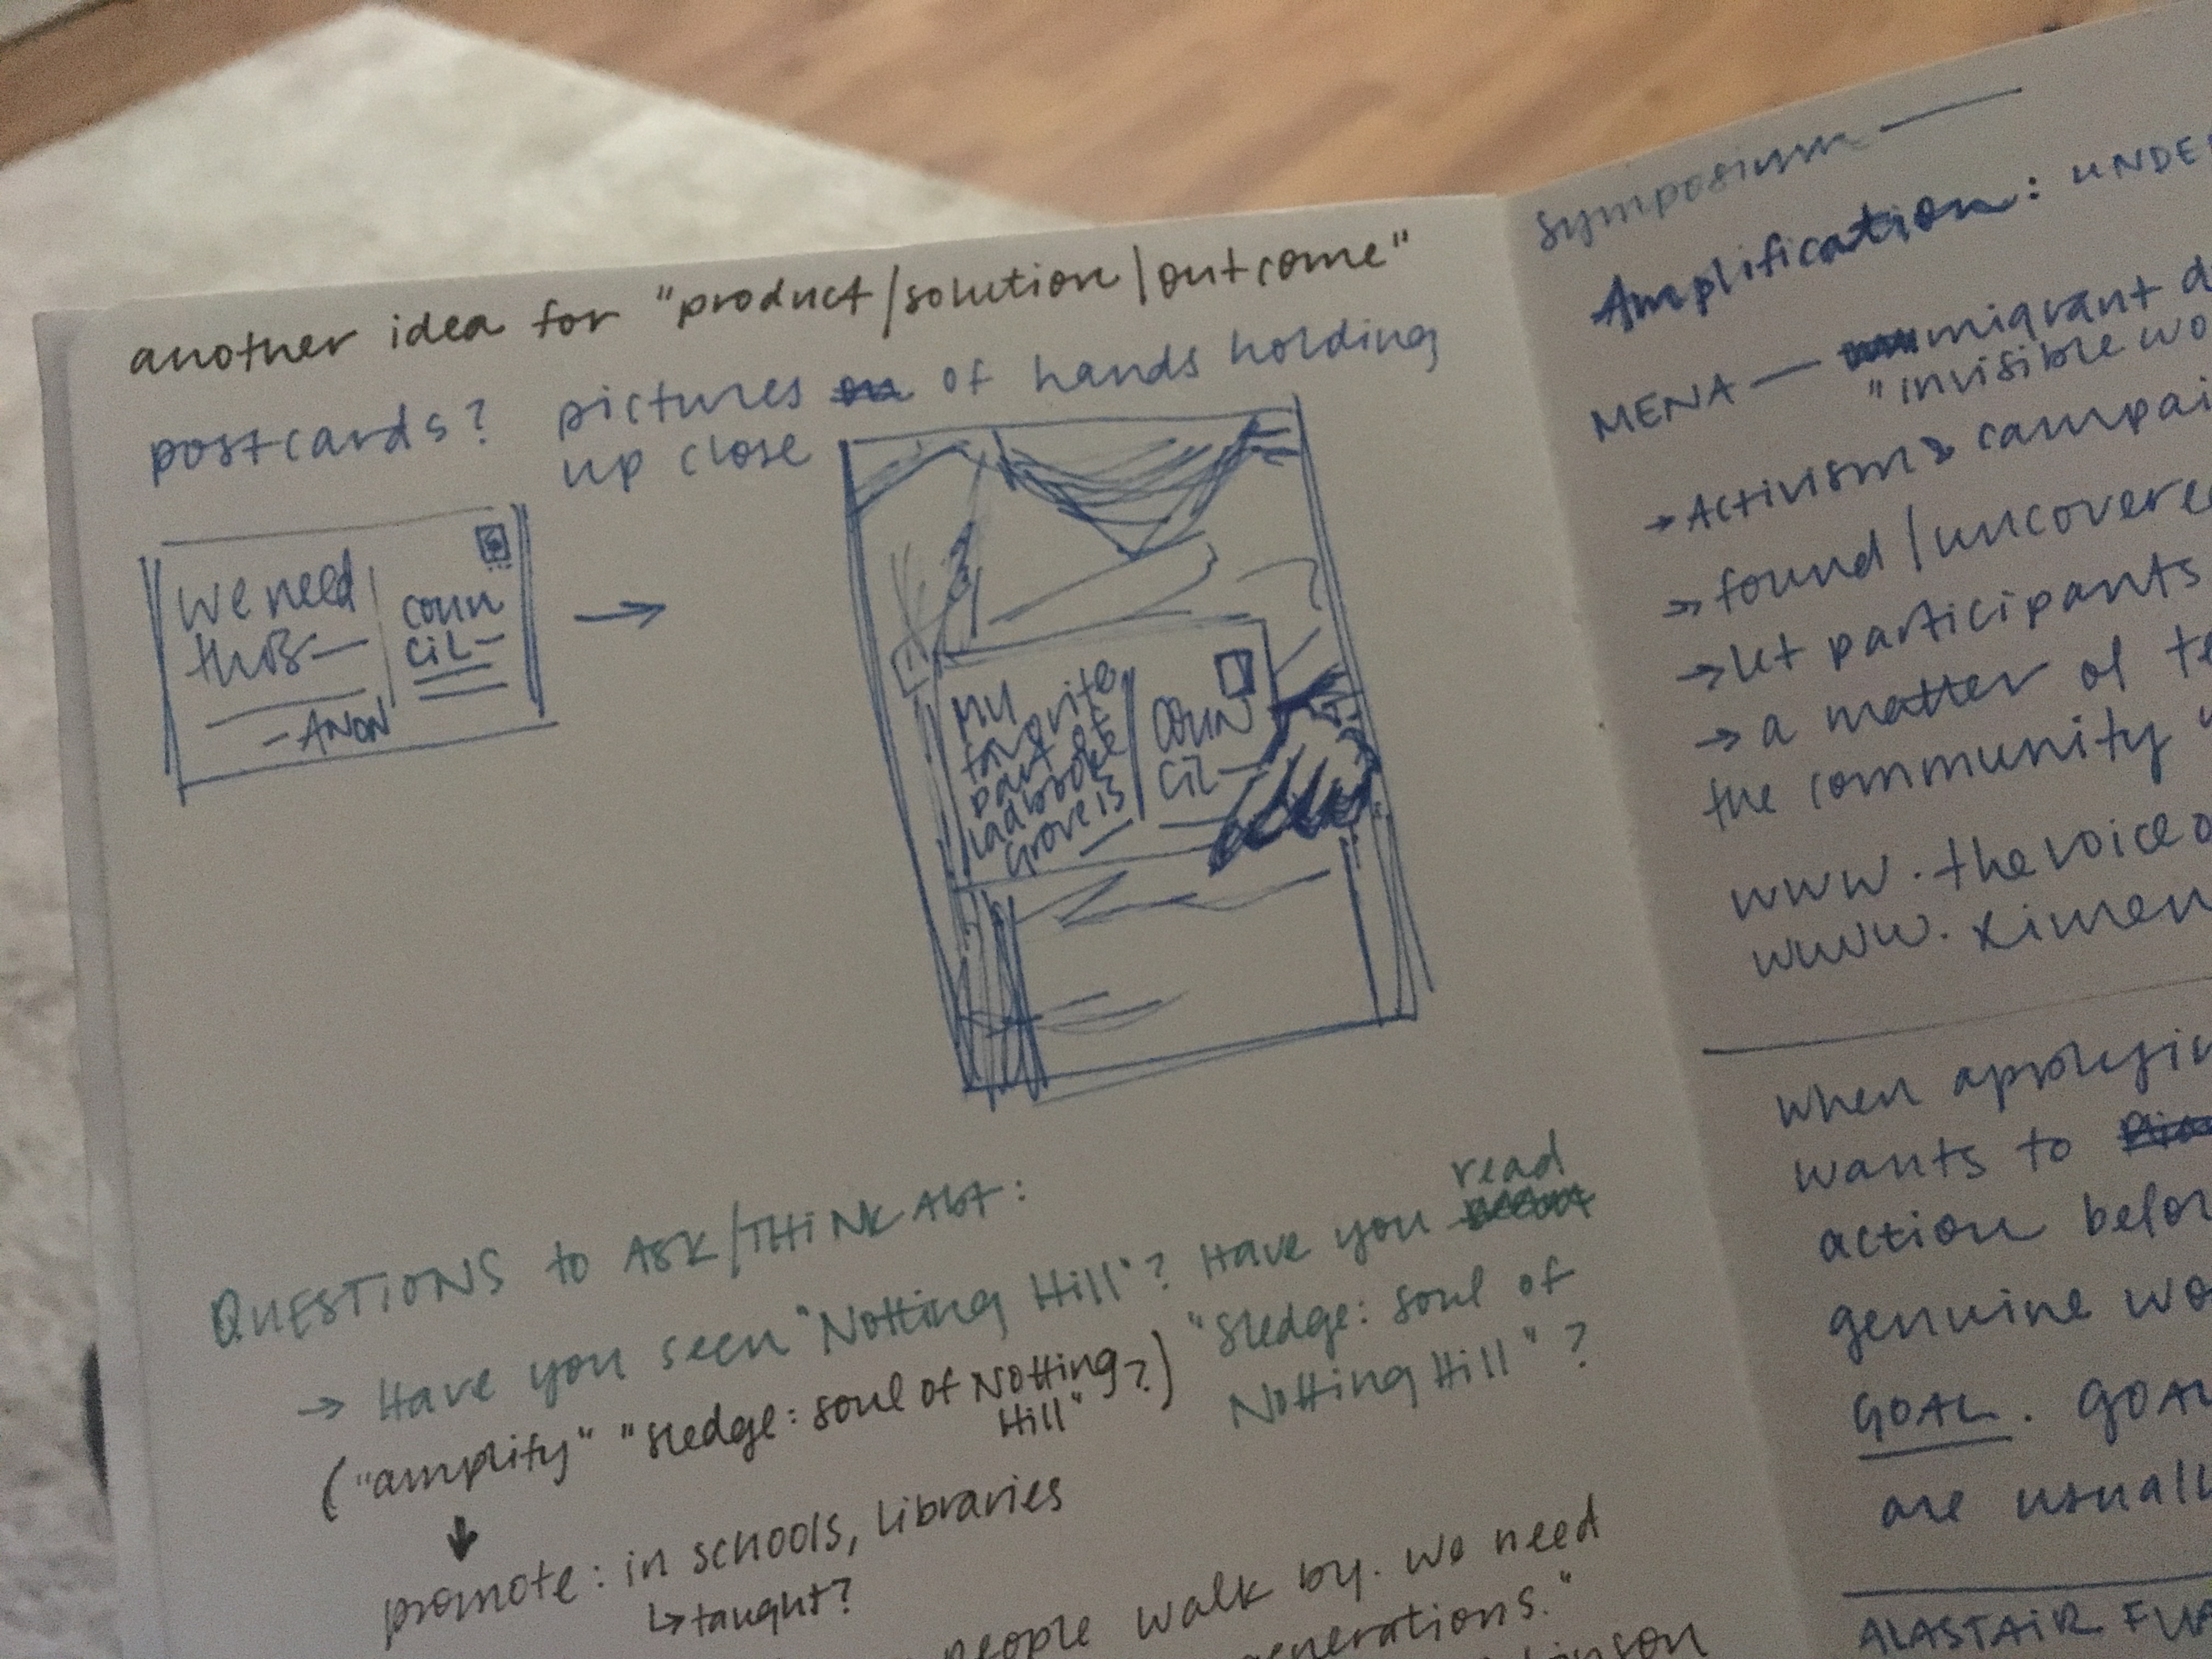 another idea for "product/solution/outcome"
postcards? pictures of hands holding
up close
we need
this—
—ANON
coun
cil—
My
favorite
part of
ladbroke
Grove is
coun
cil—
QUESTIONS to ASK/THINK Abt:
→ Have you seen "Notting Hill"? Have you read
"Sledge: soul of
Notting Hill"?
("amplify" "sledge: soul of Notting
Hill"?)
↓
promote: in schools, libraries
↳ taught?
people walk by. We need
generations."
symposium —
Amplification:
MENA — migrant
"invisible
→ Activism &
→ found/uncovered
→ let participants
→ a matter of
the community
www.thevoice
www.ximen
when
wants to
action
genuine
GOAL. GOAL
are usually
ALASTAIR